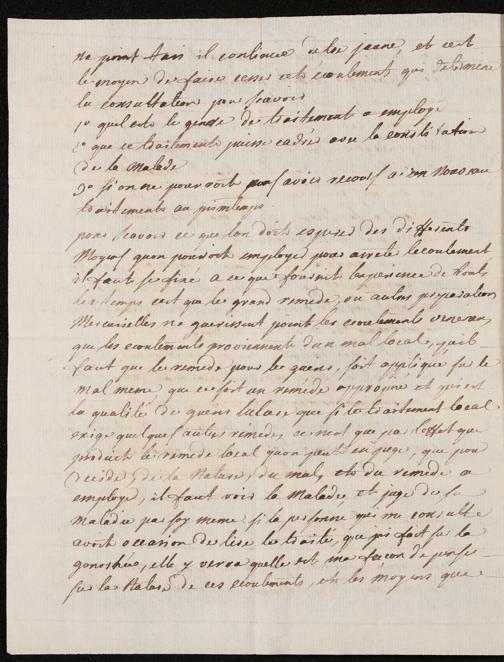 ne point tari il continue de les jaune, et cest
le moyen de faire cesser cet écoulement qui determine
la consultation pour scavoir
1° quel est le genre de traitement a employé
2° que ce traitement puisse cadrer avec la constitution
de la Malade
3° si on ne pourroit pas avoir recours a un nouveau
traitements au printemps
pour scavoir ce que lon doit esperer des differents
Moyens quon pourroit employer pour arreter lecoulement
il faut se fixé a ce que fournit lexperience de touts
les temps cest que le grand remede, ou autres preparations
Mercurielles ne guerissent point les ecoulements veneriens,
que les ecoulements proviennent dun mal local, quil
faut que le remede pour les guerir, soit applique sur le
mal meme que ce soit un remede approprié et qui ait
la qualité de guerir la cause que si le traitement local
exige quelques autres remedes, ce nest que par leffet que
produit le remede local quon peut en juger, que pour
decider de la Nature du mal, et du remede a
employer, il faut voir la Malade et juger de sa
Maladie par soy meme si la personne qui me consulte
avoit occasion de lire le traité, que jai fait sur la
gonorhée, elle y verra quelle est ma façon de penser
sur la Nature de ces ecoulements, et les moyens que